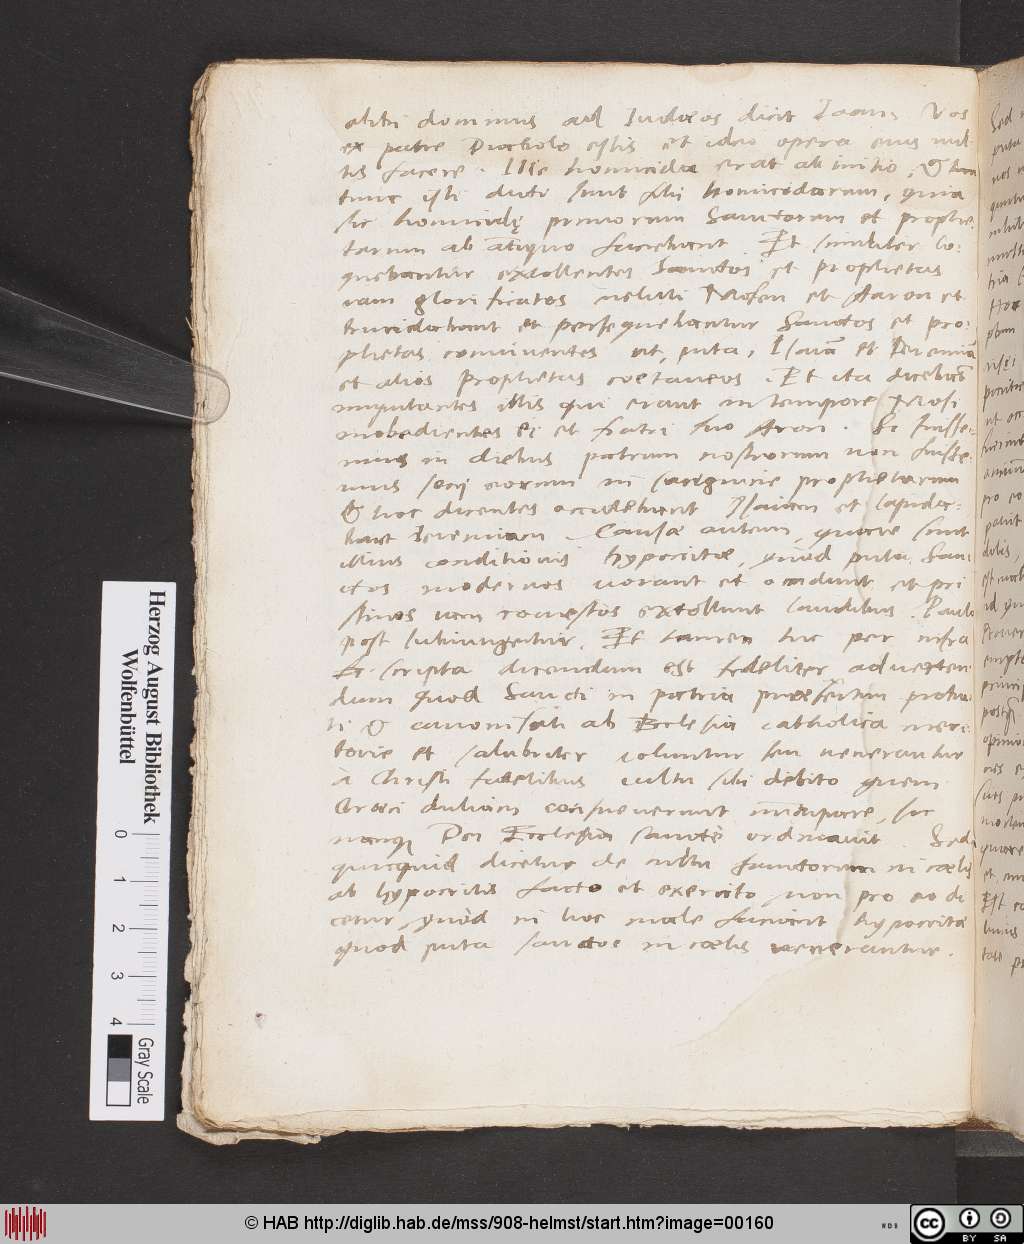 dominus ad Iudæos dicit Ioan: Vos
ex patre Diabolo estis et ideo opera eius vul-
tis facere. Ille homicida erat ab initio,
tunc isti dicti sunt filii homicidarum, quia
sic homicidę priorum Sanctorum et prophe-
tarum ab ātiquo faciebant Et similiter lo-
quebantur extollentes sanctos et prophetas
iam glorificatos veluti Mosen et Aaron et
trucidabant et persequebantur Sanctos et pro-
phetas conviventes ut, puta, Isaiā et Ieremiā
et alios prophetas coetaneos. Et ita dicebāt
imputantes illis qui erant in tempore Mosi
inobedientes ei et fratri suo Aron. Si fuisse-
mus in diebus patrum nostrorum non fuisse-
mus socij eorum in sanguine prophetarum
& hoc dicentes occidebant Isaiam et lapida-
bant Ieremiam. Causæ autem, quare sunt
illius conditionis hypocritæ, quòd puta San
ctos modernos et pri
stinos extollunt laudibus. Paulo
post subiungentur. Et tamen hic per infra
scripta dicendum est fideliter adverten
dum quod Sancti in patria
ti & canonisati ab Ecclesia catholica meri-
torie et salubriter coluntur seu venerantur
à Christi fidelibus cultu sibi debito quem
Græci duliam consueverunt sic
namq Dei Ecclesia sanctè ordinavit. Sed
quicquid dicetur de cultu sanctorum in cœlis
ab hypocritis facto et exercito, non pro eo di
cetur, quòd in hoc male faciant hypocritæ
quod puta sanctos in cœlis venerantur.
Herzog August Bibliothek
Wolfenbüttel
0 1 2 3 4
Gray Scale
© HAB http://diglib.hab.de/mss/908-helmst/start.htm?image=00160
WDB
cc BY SA